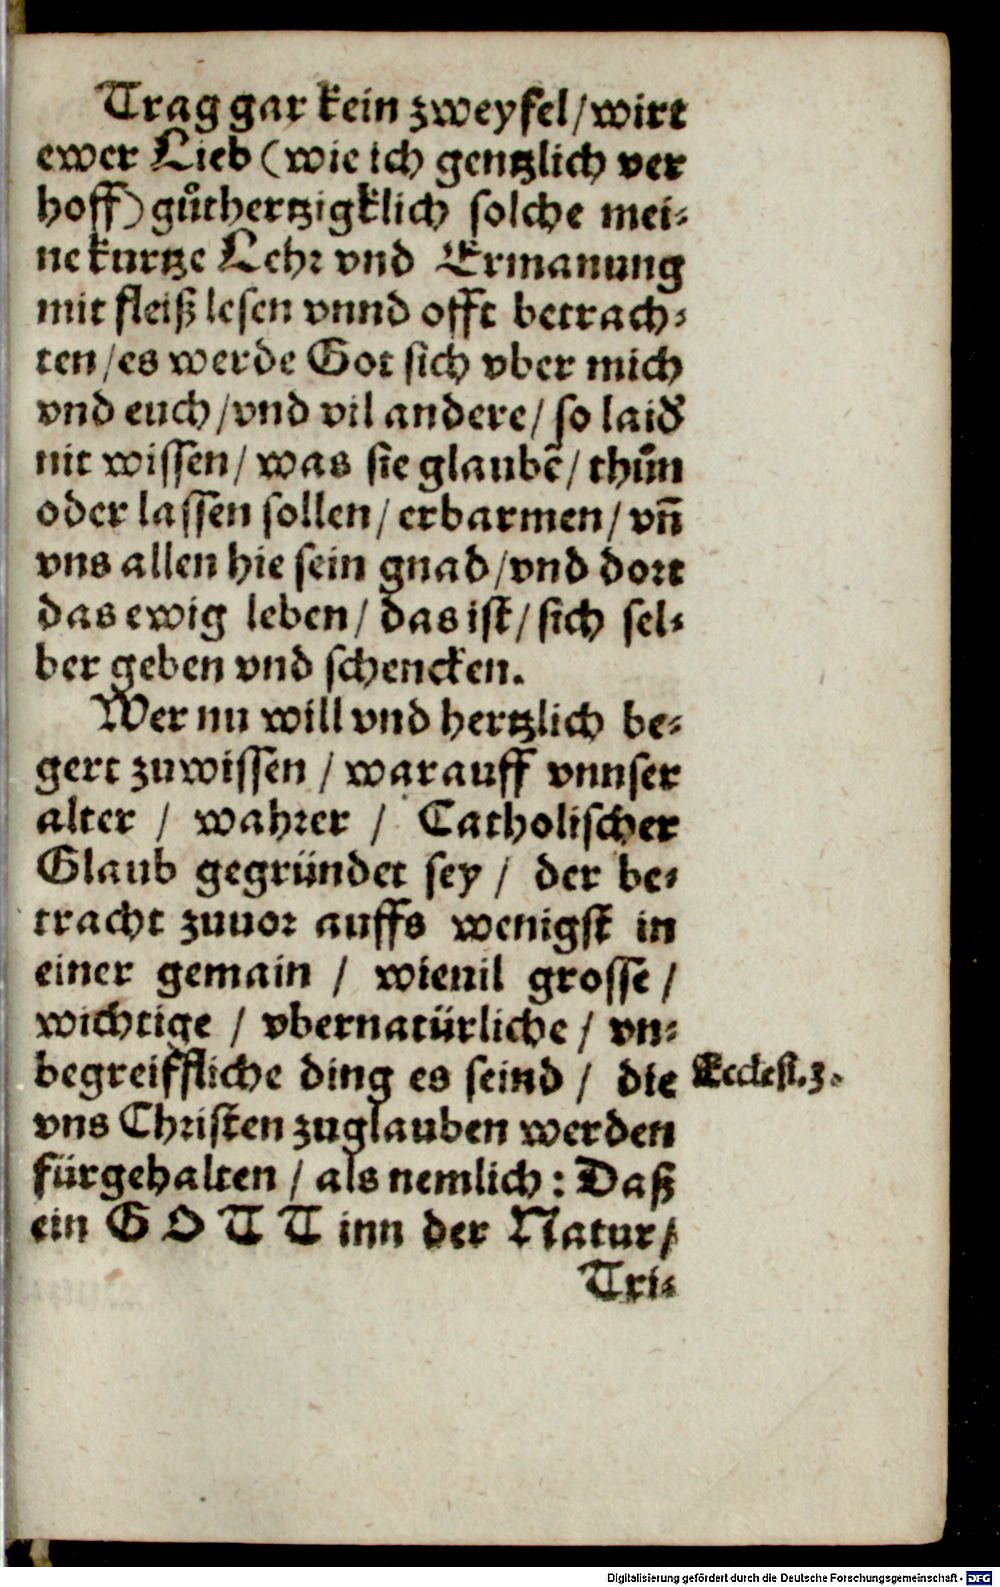 Trag gar kein zweyfel/wirt
ewer Lieb (wie ich gentzlich ver
hoff) gůthertzigklich solche mei⸗
ne kurtze Lehr vnd Ermanung
mit fleiß lesen vnnd offt betrach⸗
ten/es werde Got sich vber mich
vnd euch/vnd vil andere/ so laid̕
nit wissen/ was sie glaubē/ thůn
oder lassen sollen/ erbarmen/ vn̄
vns allen hie sein gnad/vnd dort
das ewig leben/ das ist/ sich sel⸗
ber geben vnd schencken.
Wer nu will vnd hertzlich be⸗
gert zuwissen / warauff vnnser
alter / wahrer / Catholischer
Glaub gegründet sey / der be⸗
tracht zuuor auffs wenigst in
einer gemain / wieuil grosse /
wichtige / vbernatürliche / vn⸗
begreiffliche ding es seind / die
Ecclest.3.
vns Christen zuglauben werden
fürgehalten / als nemlich: Daß
ein G O T T inn der Natur/
Tri⸗
Digitalisierung gefördert durch die Deutsche Forschungsgemeinschaft - DFG